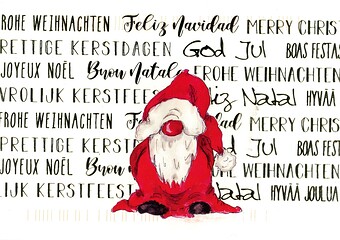 FROHE WEIHNACHTEN Feliz Navidad MERRY CHRIST
PRETTIGE KERSTDAGEN God Jul BOAS FESTAS
JOYEUX NOËL Buon Natale FROHE WEIHNACHTEN
VROLIJK KERSTFEES liz Natal HYVÄÄ
FROHE WEIHNACHTEN dad MERRY CHRIST
PRETTIGE KERS Jul BOAS FES
JOYEUX NOËL Buon HE WEIHNACHTEN
LIJK KERSTFEEST Natal HYVÄÄ JOULUA